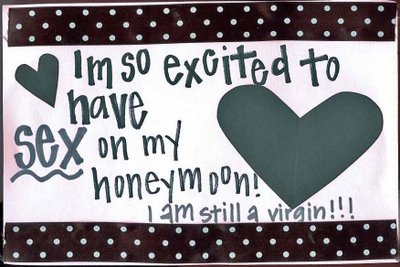 Im so excited to
have
sex on my
honeymoon!
I am still a virgin!!!